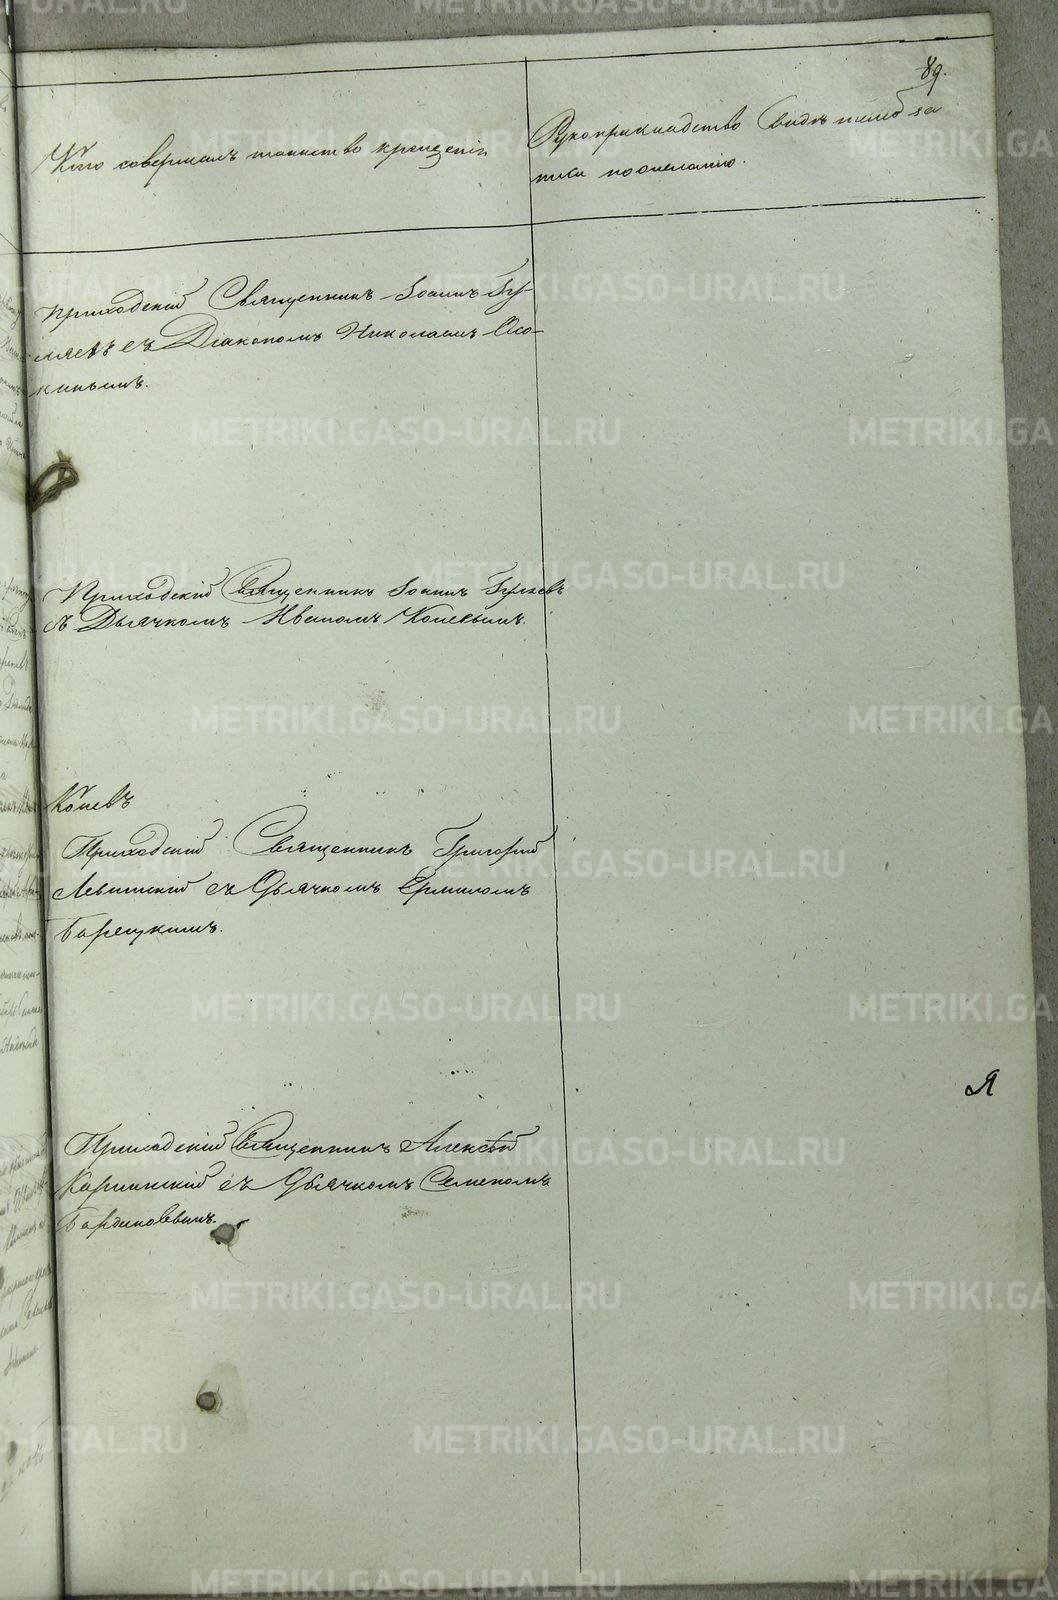 89.
Кто совершалъ таинство крещенія
Рукоприкладство Свидѣтелей за
писи по желанію.
Приходскій Священникъ Іоаннъ Гу-
ляевъ съ Діакономъ Николаемъ Осо-
кинымъ.
Приходскій Священникъ Іоаннъ Гуляевъ
съ Дьячкомъ Иваномъ Коневымъ.
Коневъ
Приходскій Священникъ Григорій
Левитскій съ Дьячкомъ Ермиломъ
Барецкимъ.
Приходскій Священникъ Алексѣй
Карпинскій съ Дьячкомъ Семеномъ
Я
METRIKI.GASO-URAL.RU